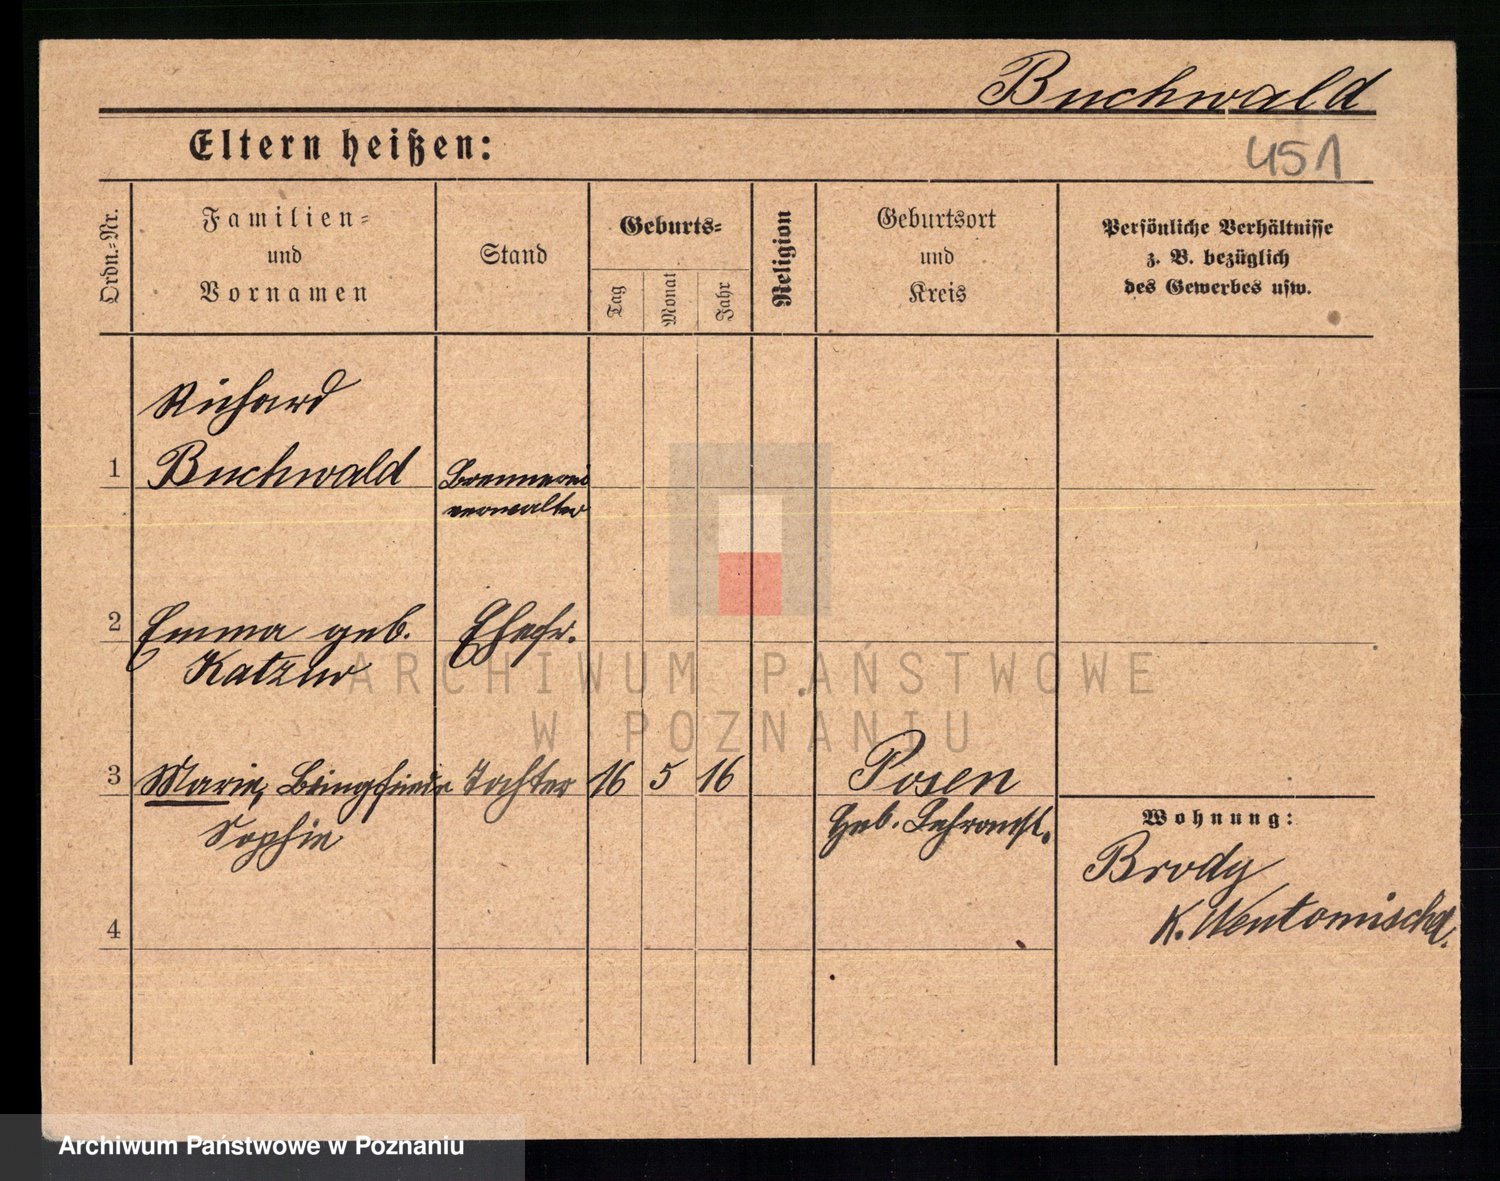 Buchwald
451
Eltern heißen:
Ordn.=Nr.
Familien=
und
Vornamen
Stand
Geburts=
Tag
Monat
Jahr
Religion
Geburtsort
und
Kreis
Persönliche Verhältnisse
z. B. bezüglich
des Gewerbes usw.
Richard
1 Buchwald Brennerei
verwalter
2 Emma geb. Ehefr.
Katzur
3 Marie, Tochter 16 5 16 Posen
Sophie
Geb. Lehranst.
Wohnung:
Brody
K. Neutomischel.
4
ARCHIWUM PAŃSTWOWE
W POZNANIU
Archiwum Państwowe w Poznaniu